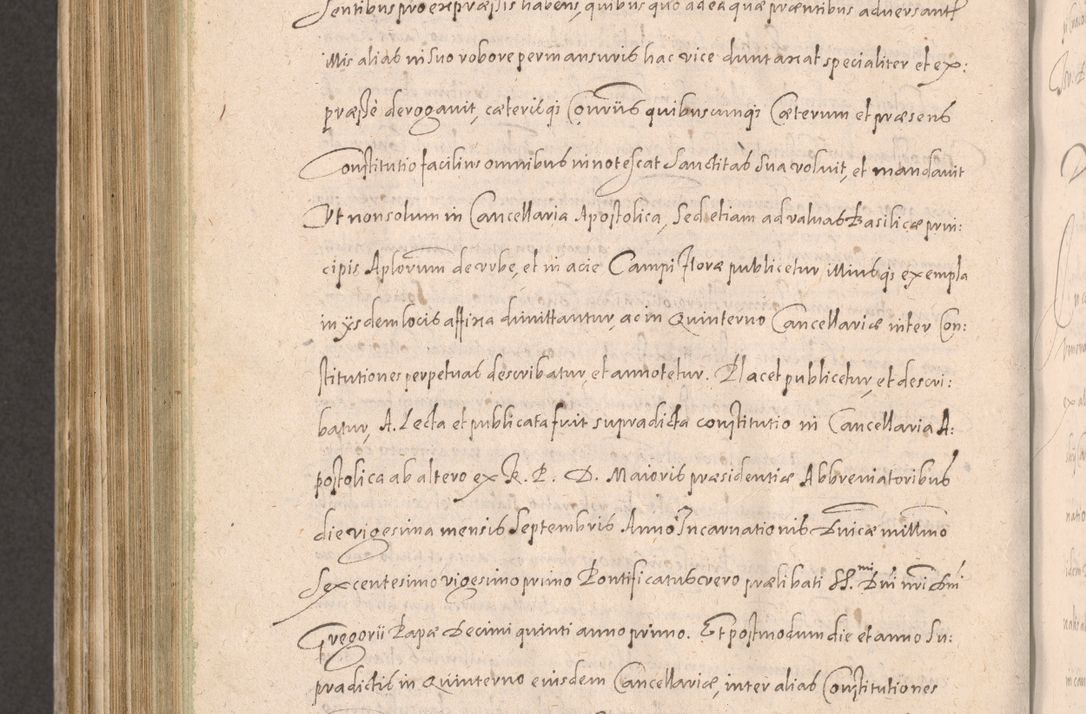 sentibus pro expræssis habens, quibus quo ad ea quæ præntibus adversantr
illis alias in suo robore permansuris hac vice duntaxat specialiter et ex:
præssè derogavit, cæterisqȝ Conriis quibuscunqȝ Cæterum et præsens
Constitutio facilius omnibus innotescat Sanctitas Sua voluit, et mandavit
Ut non solum in Cancellaria Apostolica, Sed etiam ad valvas Basilicæ prin:
cipis Aplorum de urbe, et in acie Campi floræ publicetur illiusqȝ exempla
in ysdem locis affixa dimittantur, ac in Quinterno Cancellariæ inter Con:
stitutiones perpetuas describatur, et annotetur. Placet publicetur, et descri:
batur, A. Lecta et publicata fuit supradicta constitutio in Cancellaria A:
postolica ab altero ex R. P. D. Maioris præsidentiæ Abbreviatoribus
die vigesima mensis Septembris Anno Incarnationis Dnicæ millmo
Sexcentesimo vigesimo primo Pontificatus vero prælibati SS.mi Dni nri Dni
Gregorii Papæ Decimi quinti anno primo. Et postmodum die et anno Su:
pradictis in Quinterno eiusdem Cancellariæ, inter alias Constitutiones